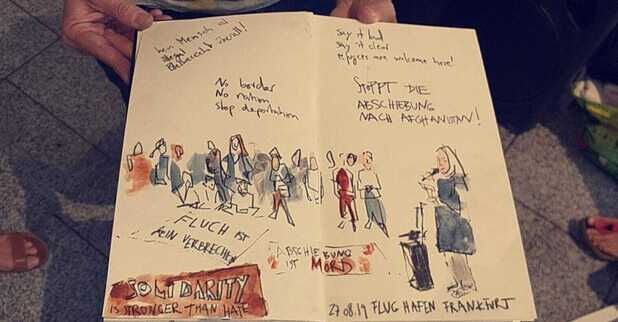 kein Mensch ist
illegal
Bleiberecht überall!
No border
No nation
stop deportation
Say it loud
Say it clear
refugees are welcome here!
STOPPT DIE
ABSCHIEBUNG
NACH AFGHANISTAN!
FLUCH IST
KEIN VERBRECHEN
ABSCHIEBUNG
IST MORD
SOLIDARITY
IS STRONGER THAN HATE
27.08.19 FLUGHAFEN FRANKFURT